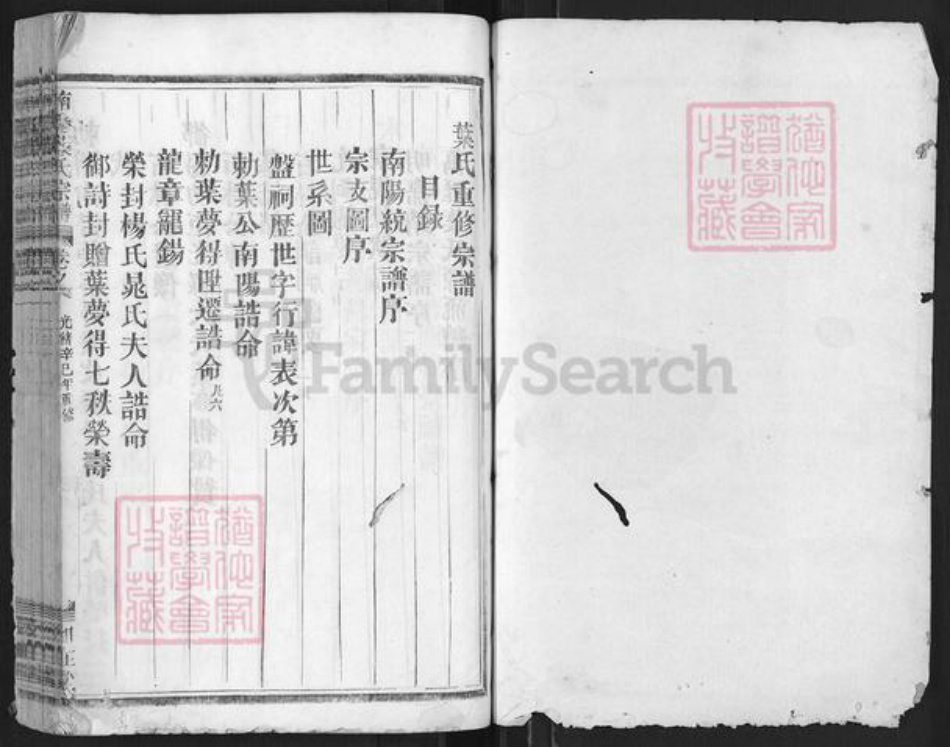 葉氏重修宗譜
目録
南陽統宗譜序
宗支圖序
世系圖
盤祠歷世字行諱表次第
勅葉公南陽誥命
勅葉夢得陞遷誥命共六
龍章寵錫
榮封楊氏晁氏夫人誥命
御詩封贈葉夢得七秩榮壽
光緒辛巳年重修
猶他家譜學會收藏
猶他家譜學會收藏
FamilySearch